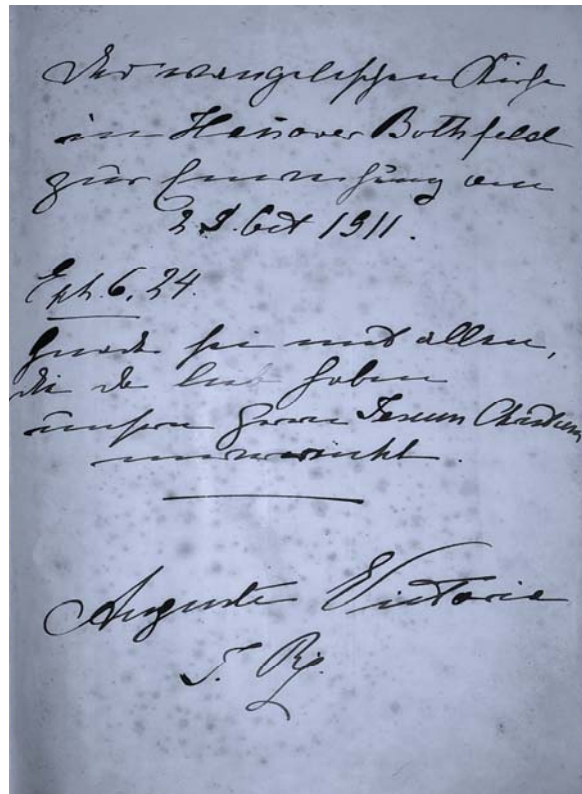 Der evangelischen Kirche
in Han̄over Bothfeld
zur Einweihung am
29. Oct 1911.
Eph. 6, 24.
Gnade sei mit allen,
die da lieb haben
unsern Herrn Jesum Christum
unverrückt.
Auguste Victoria
I. R.